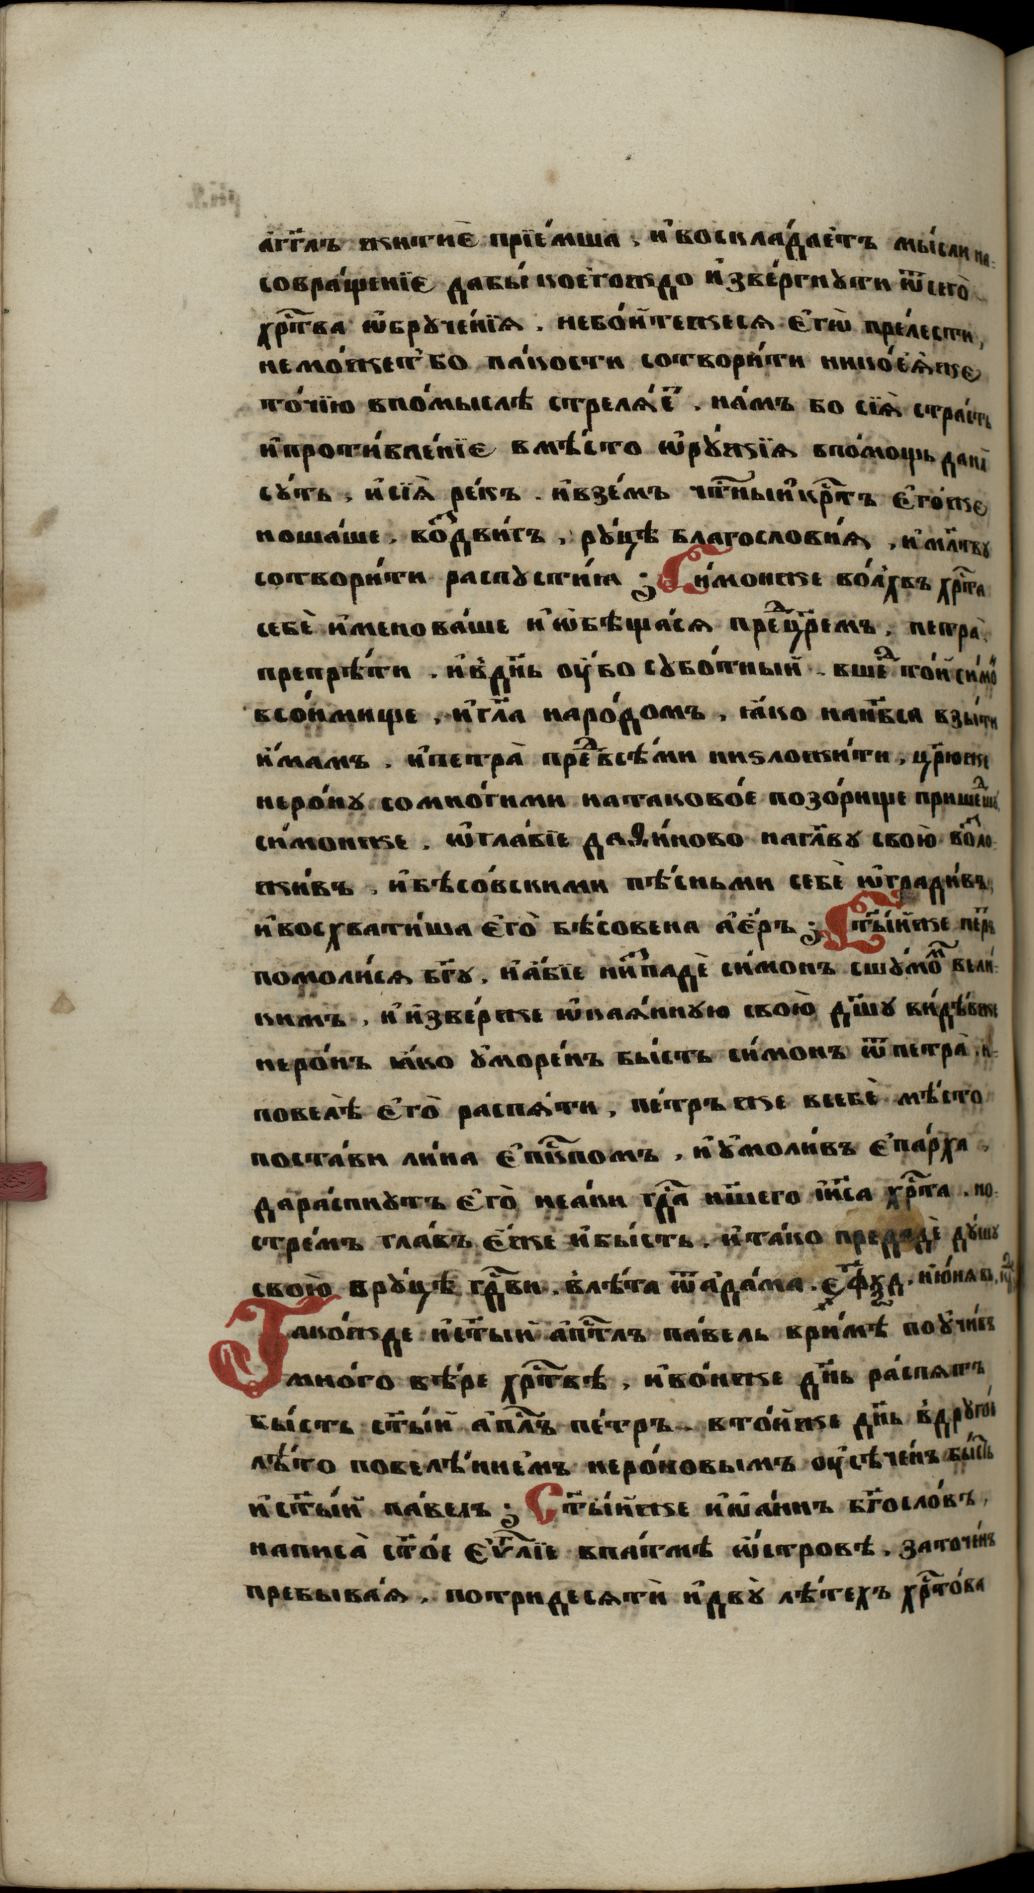 а҆гг҃лъ житиѐ прїе́мша, и҆воскла́даетъ мы́сли на
совраще́нїе дабы̀ коего́ждо и҆зве́ргнути ѿсего̀
хрⷭ҇тва ѡ҆бруче́нїѧ. небо́йтежесѧ є҆гѡ̀ пре́лести,
немо́жетъ бо па́кости сотвори́ти нико́еѧже
то́чїю впо́мыслѣ стрелѧ́еⷮ. на́мъ бо сїѧ̀ стра́сть
и҆проти́вленїе вмѣ́сто ѡ҆ру́жїѧ впо́мощь данї
су́ть, и҆сїѧ̀ ре́къ. и҆взе́мъ чтⷭ҇ны́и҆ крⷭ҇тъ є҆го́же
ноша́ше, воⷥдви́гъ, ру́цѣ благослови́ѧ, и҆мл҃тву
сотвори́ти распусти́ѧ ; Си́монъже во́лхвъ хрⷭ҇та
себѐ и҆менова́ше и҆ѡ҆бѣща́сѧ преⷣцр҃емъ, петра̀
препрѣ́ти. и҆в̾дн҃ь оу҆́бо субо́тный. вшеⷣ то́й си́моⷩ
всо́нмище, и҆гл҃а наро́домъ, ꙗ҆́ко нанб҃са взы́ти
и҆́мамъ. и҆петра̀ преⷣвсѣ́ми низложи́ти, цр҃ю́же
неро́ну сомно́гими натаково́е позо́рище пришеⷣшꙋ
си́монъже. ѡ҆гла́вїе даѳи́ново наглв҃у свою̀ воⷥло
жи́въ, и҆бѣсо́вскими пѣ́сньми себѐ ѡ҆гради́въ
и҆восхвати́ша є҆го̀ бѣ́сове на а҆е́ръ ; Ст҃ы́йже пеⷮръ
помоли́сѧ бг҃у, и҆а҆́бїе ни́ⷥпадѐ си́монъ сшумоⷨ вели
кимъ, и҆и҆зве́рже ѡ҆каѧ́нную свою̀ дш҃у ви́дѣвже
неро́нъ ꙗ҆́ко у҆море́нъ бы́сть си́монъ ѿпетра̀, и҆
повелѣ̀ є҆го̀ распѧ́ти, пе́тръ же всебѐ мѣ́сто
поста́ви ли́на є҆пⷭ҇помъ, и҆у҆моли́въ є҆па́рха,
дараспнутъ є҆го̀ неа́ки гдⷭ҇а нш҃его і҆и҃са хрⷭ҇та. но
стре́мъ гла́въ є҆́же и҆бы́сть. и҆та́ко предадѐ ду́шу
свою̀ вру́цѣ гдⷭ҇ви. влѣ́та ѿа҆да́ма. ҂є҃фѯ҃д, и҆ю́нѧ в,
Тако́жде и҆ст҃ый а҆пⷭ҇тлъ па́велъ ври́мѣ поу҆чи́въ
мно́го вѣ́ре хрⷭ҇твѣ, и҆во́ньже дн҃ь ра́спѧтъ
бы́сть ст҃ы́й а҆пл҃ъ пе́тръ. вто́йже дн҃ь в̾друго́е
лѣ́то повелѣ́ниемъ неро́новымъ оу҆сѣче́нъ бы́сть
и҆ст҃ы́й па́велъ ; Ст҃ы́йже и҆ѡ҆а́ннъ бг҃осло́въ,
написа̀ ст҃о́е є҆ѵⷢ҇лїе впа́тмѣ ѡ҆́стровѣ, заточе́нъ
пребыва́ѧ, потридесѧтѝ и҆дву̀ лѣ́техъ хрⷭ҇то́ва